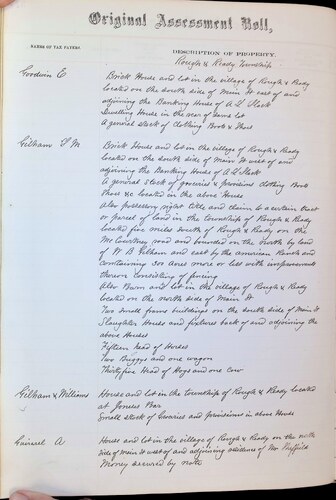 Original Assessment Roll,
NAMES OF TAX PAYERS.
DESCRIPTION OF PROPERTY.
Rough & Ready Township
Goodwin E
Brick House and lot in the village of Rough & Ready
located on the south side of Main St east of and
adjoining the Banking House of A. G.
Dwelling House in the rear of same lot
A general stock of clothing Boots & Shoes
Gilham
Brick House and lot in the village of Rough & Ready
located on the south side of Main St west of and
adjoining the Banking House of A. G.
A general stock of groceries & provisions clothing Boots
Shoes &c located in the above House
also possessory right title and claim to a certain tract
or parcel of land in the township of Rough & Ready
located five miles south of Rough & Ready on the
McCourtney road and bounded on the north by land
of W. B Gilham and east by the american Ranch and
containing 300 acres more or less with improvements
thereon consisting of fencing
Also Barn and lot in the village of Rough & Ready
located on the north side of Main St
Two small frame buildings on the south side of Main St
Slaughter House and fixtures back of and adjoining the
above Houses
Fifteen head of Horses
Two Buggys and one wagon
Thirty five Head of Hogs and one cow
Gilham & Williams
House and lot in the township of Rough & Ready located
at Jones Bar
Small stock of Groceries and provisions in above House
A
House and lot in the village of Rough & Ready on the north
side of Main st west of and adjoining residence of Mr
Money secured by note